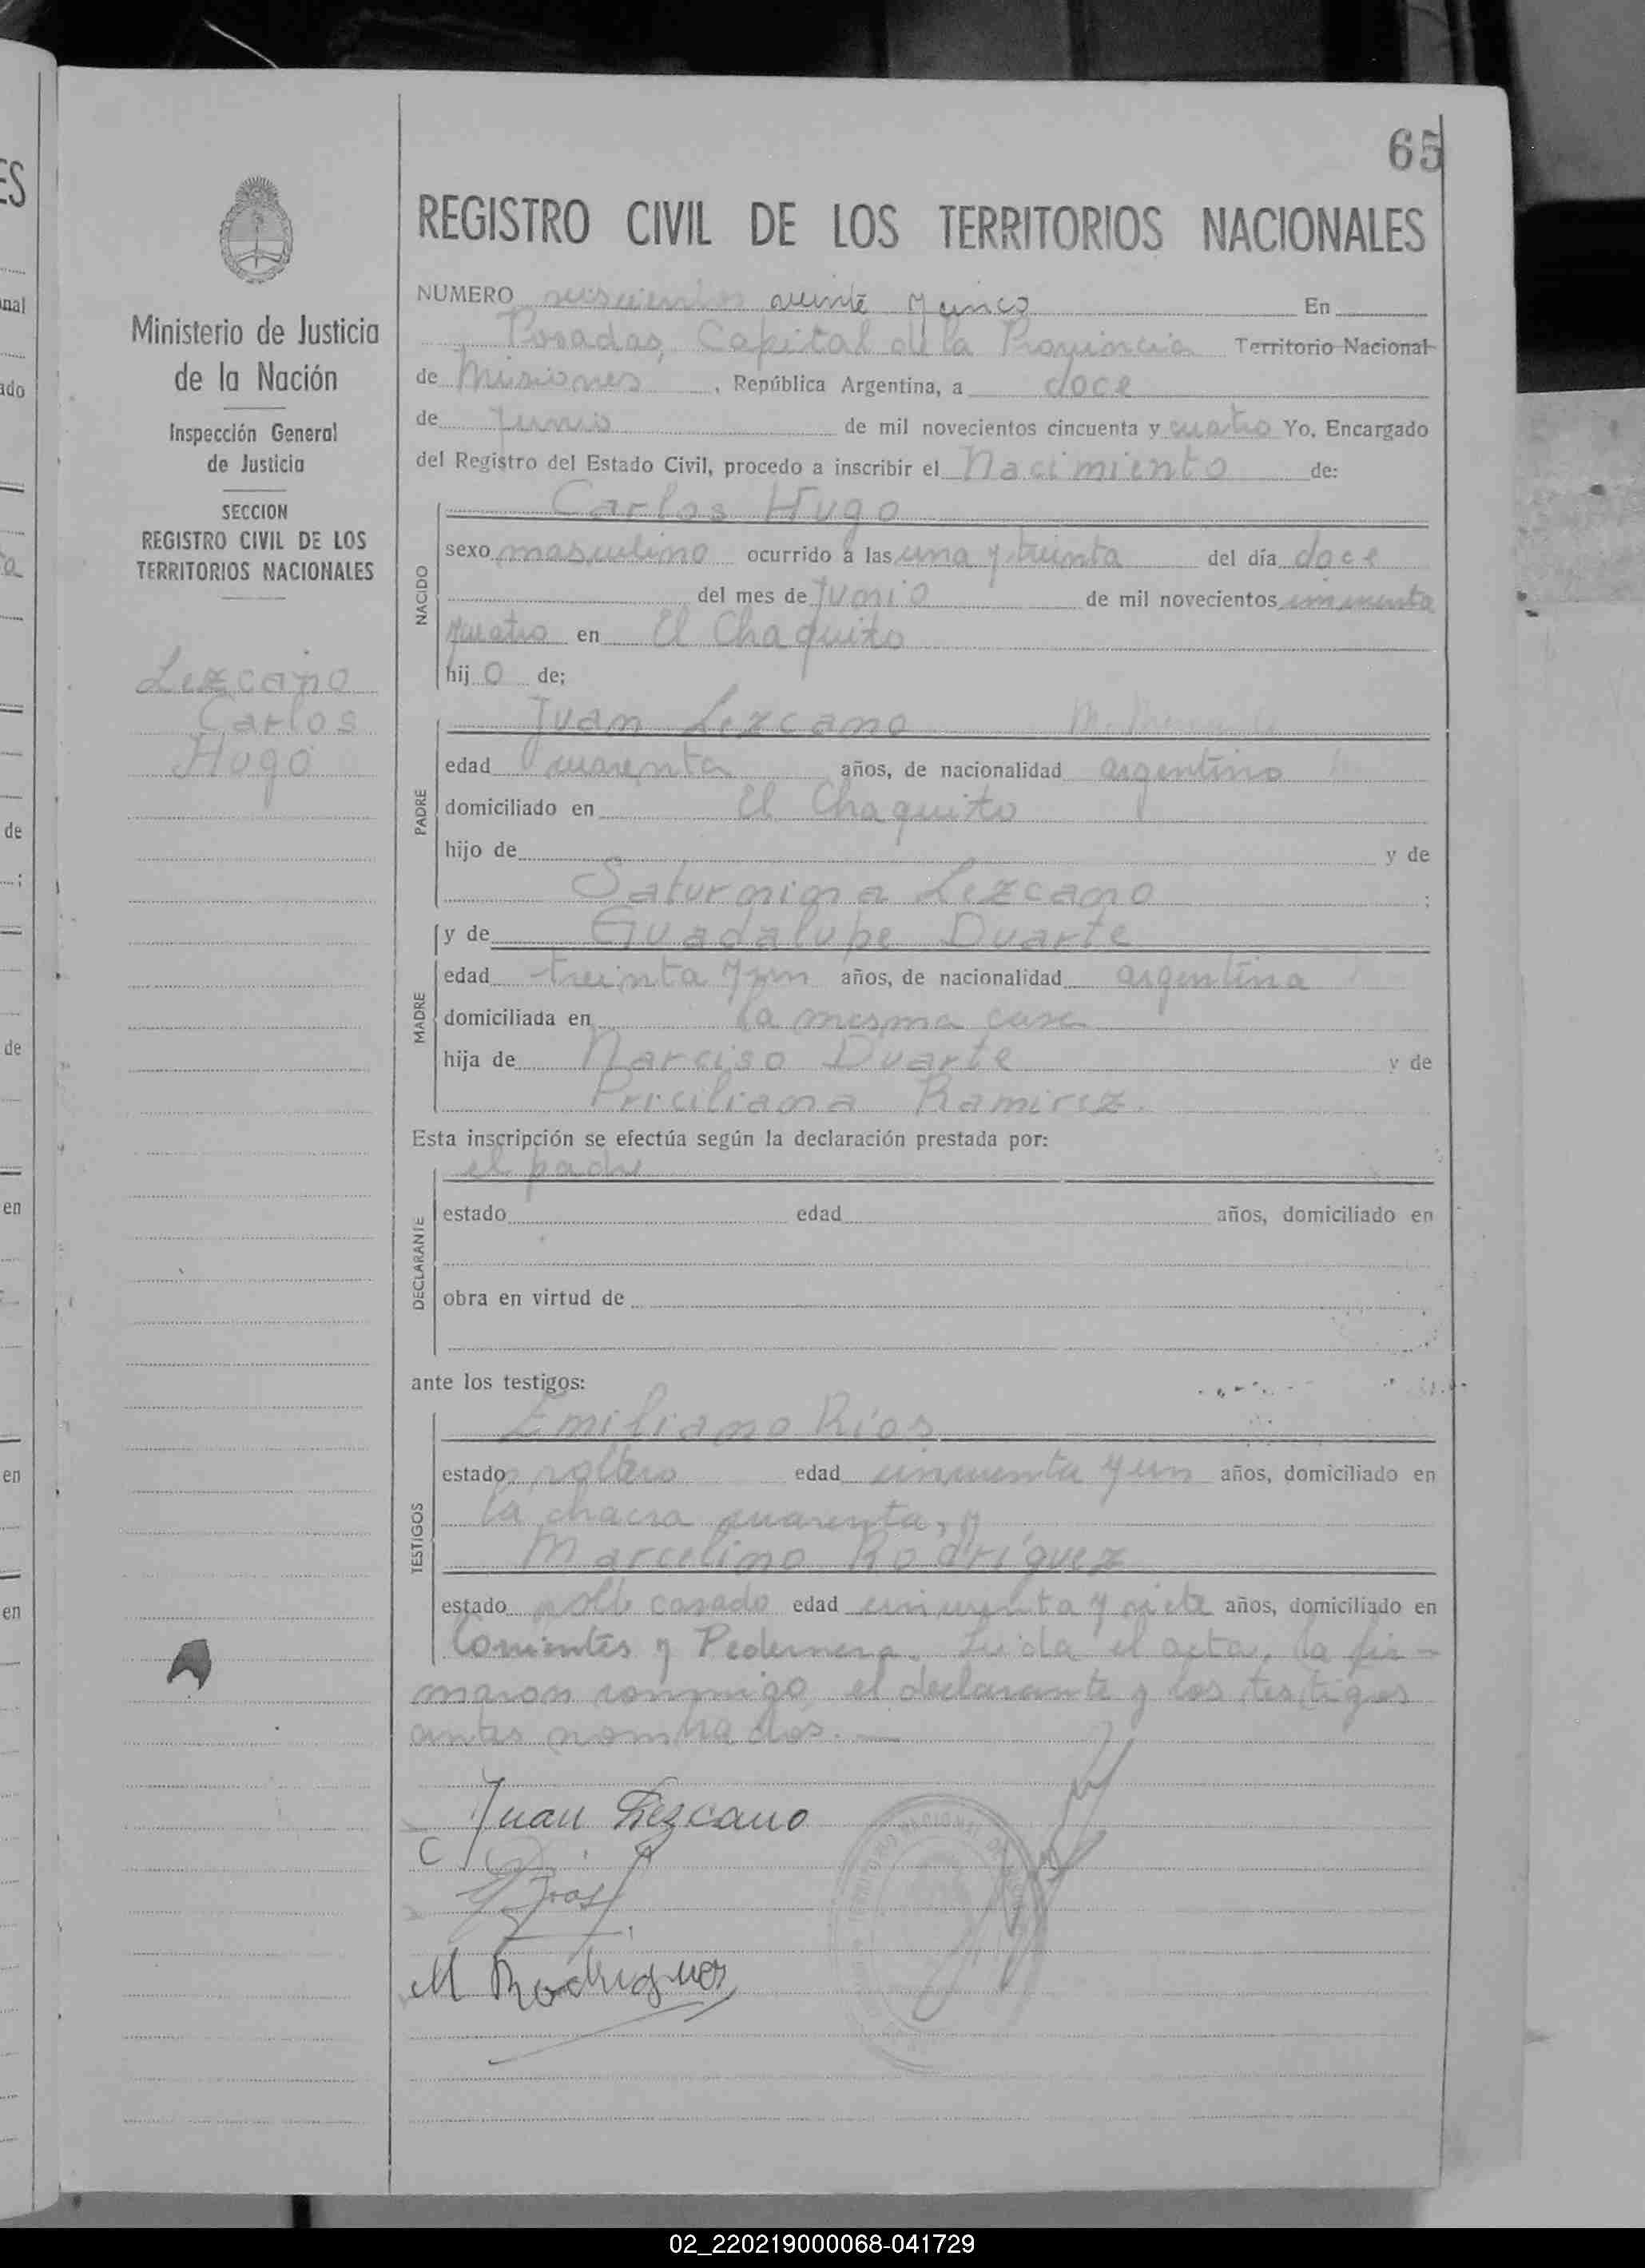 65
REGISTRO CIVIL DE LOS TERRITORIOS NACIONALES
Ministerio de Justicia
de la Nación
Inspección General
de Justicia
SECCION
REGISTRO CIVIL DE LOS
TERRITORIOS NACIONALES
Lezcano
Carlos
Hugo
NUMERO seiscientos veinte y cinco En
Posadas, Capital de la Provincia Territorio Nacional
de Misiones, República Argentina, a doce
de Junio de mil novecientos cincuenta y cuatro Yo, Encargado
del Registro del Estado Civil, procedo a inscribir el Nacimiento de:
NACIDO
Carlos Hugo
sexo masculino ocurrido a las una y treinta del día doce
del mes de Junio de mil novecientos cincuenta
y cuatro en El Chaquito
hijo de;
PADRE
Juan Lezcano
edad cuarenta años, de nacionalidad argentino
domiciliado en El Chaquito
hijo de y de
Saturnina Lezcano ;
MADRE
y de Guadalupe Duarte
edad treinta y un años, de nacionalidad argentina
domiciliada en la misma casa
hija de Narciso Duarte y de
Priciliana Ramirez.
Esta inscripción se efectúa según la declaración prestada por:
DECLARANTE
el padre
estado edad años, domiciliado en
obra en virtud de
ante los testigos:
TESTIGOS
Emiliano Ríos
estado soltero edad cincuenta y un años, domiciliado en
la chacra cuarenta, y
Marcelino Rodríguez
estado casado edad cincuenta y siete años, domiciliado en
Corrientes y Pedernera. Leida el acta, la fir-
maron conmigo el declarante y los testigos
antes nombrados.—
Juan Lezcano
M Rodrigues
02_220219000068-041729